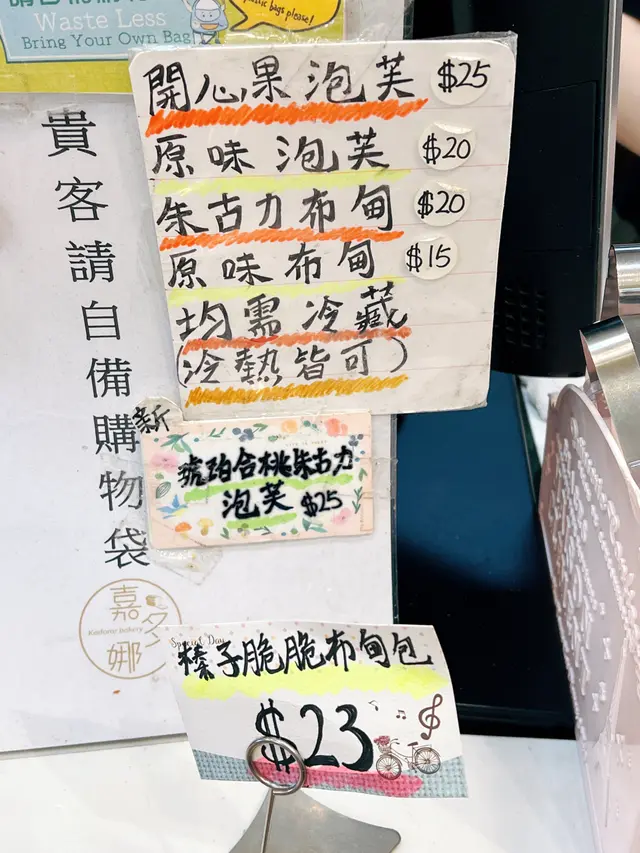 Waste Less
Bring Your Own Bag
bags please!
開心果泡芙 $25
原味泡芙 $20
朱古力布甸 $20
原味布甸 $15
均需冷藏
(冷熱皆可)
貴客請自備購物袋
新
琥珀合桃朱古力
泡芙 $25
嘉多娜
Special Day
榛子脆脆布甸包
$23